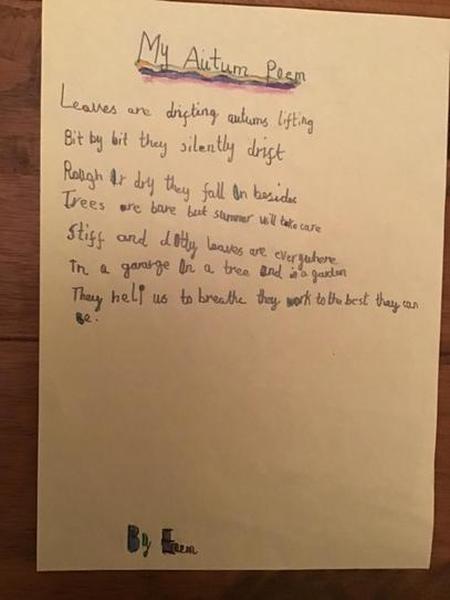 My Autum Poem
Leaves are drifting autums lifting
Bit by bit they silently drift
Rough Or dry they fall On besides
Trees are bare but summer will take care
Stiff and dotty leaves are everywhere
In a garage On a tree and in a garden
They help us to breathe they work to the best they can
Be.
By Erem